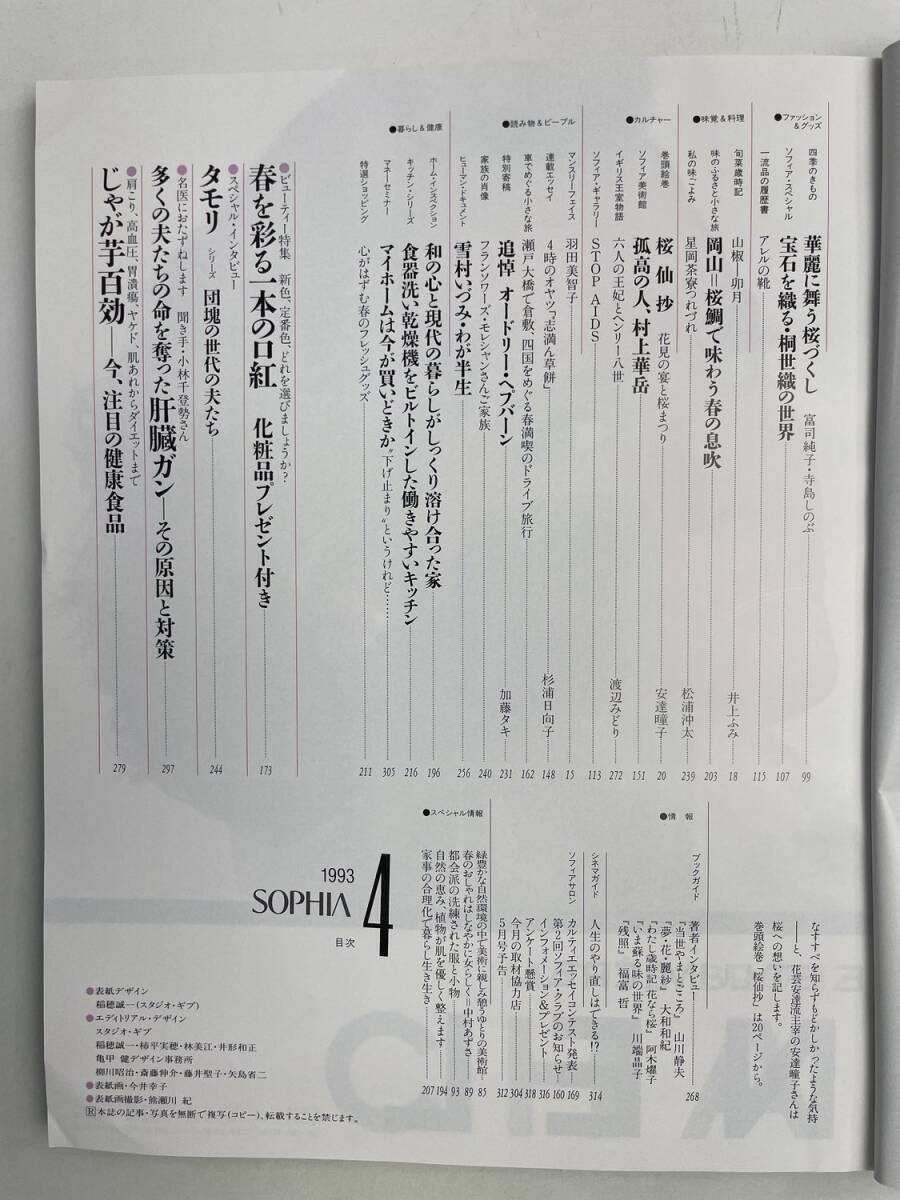 ●ファッション&グッズ
四季のきもの 華麗に舞う桜づくし 富司純子・寺島しのぶ 99
ソフィア・スペシャル 宝石を織る・桐世織の世界 107
一流品の履歴書 アレルの靴 115
●味覚&料理
旬菜歳時記 山椒―卯月 井上ふみ 18
味のふるさと小さな旅 岡山=桜鯛で味わう春の息吹 203
私の味ごよみ 星岡茶寮つれづれ 松浦沖太 239
●カルチャー
巻頭絵巻 桜仙抄 花見の宴と桜まつり 安達瞳子 20
ソフィア美術館 孤高の人、村上華岳 151
イギリス王室物語 六人の王妃とヘンリー八世 渡辺みどり 272
ソフィア・ギャラリー STOP AIDS 113
●読み物&ピープル
マンスリーフェイス 羽田美智子 15
連載エッセイ 4時のオヤツ「志満ん草餅」 杉浦日向子 148
車でめぐる小さな旅 瀬戸大橋で倉敷、四国をめぐる春満喫のドライブ旅行 162
特別寄稿 追悼 オードリー・ヘプバーン 加藤タキ 231
家族の肖像 フランソワーズ・モレシャンさんご家族 240
ヒューマン・ドキュメント 雪村いづみ・わが半生 256
●暮らし&健康
ホーム・インスペクション 和の心と現代の暮らしがしっくり溶け合った家 196
キッチン・シリーズ 食器洗い乾燥機をビルトインした働きやすいキッチン 216
マネーセミナー マイホームは今が買いどきか “下げ止まり”というけれど…… 305
特選ショッピング 心がはずむ春のフレッシュグッズ 211
●ビューティー特集 新色、定番色、どれを選びましょうか?
春を彩る一本の口紅 化粧品プレゼント付き 173
●スペシャル・インタビュー
タモリ シリーズ 団塊の世代の夫たち 244
●名医におたずねします 聞き手・小林千登勢さん
多くの夫たちの命を奪った肝臓ガン―その原因と対策 297
●肩こり、高血圧、胃潰瘍、ヤケド、肌あれからダイエットまで
じゃが芋百効 今、注目の健康食品 279
なすすべを知らずもどかしかったような気持
――と、花芸安達流主宰の安達瞳子さんは
桜への想いを記します。
巻頭絵巻「桜仙抄」は20ページから。
●情報
ブックガイド 著者インタビュー 268
『当世やまとごころ』 山川静夫
『夢・花・麗紗』 大和和紀
『わたし歳時記 花なら桜』 阿木燿子
『いま蘇る味の世界』 川端晶子
『残照』 福富 哲
シネマガイド 人生のやり直しはできる!? 314
ソフィアサロン カルティエエッセイコンテスト発表 169
第2回ソフィア・クラブのお知らせ 160
インフォメーション&プレゼント 316
アンケート懸賞 318
今月の取材協力店 304
5月号予告 312
●スペシャル情報
緑豊かな自然環境の中で美術に親しみ憩うゆとりの美術館 85
春のおしゃれはしなやかに女らしく=中村あずさ 89
都会派の洗練された服と小物 93
自然の恵み、植物が肌を優しく整えます 194
家事の合理化で暮らし生き生き 207
1993
4
SOPHIA
目次
●表紙デザイン
稲穂誠一(スタジオ・ギブ)
●エディトリアル・デザイン
スタジオ・ギブ
稲穂誠一・柿平実穂・林美江・井形和正
亀甲 健デザイン事務所
柳川昭治・斎藤伸介・藤井聖子・矢島省二
●表紙画・今井幸子
●表紙画撮影・熊瀬川 紀
Ⓡ本誌の記事・写真を無断で複写(コピー)、転載することを禁じます。